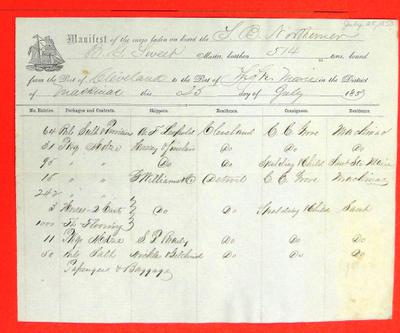 July 25, 185
Manifest of the cargo laden on board the S B Northerner
Sweet Master, burthen 514 tons, bound
from the Port of Cleveland to the Port of Marie in the District
of Mackinac this 25 day of July 185
No. Entries. Packages and Contents. Shippers. Residence. Consignees. Residence.
64 Bls Salt & Cleveland C C Mackinac
31 Pkg Mdze Hussey & Do Do Do
95 " " Do Do Spalding & Childs Saut Ste Marie
18 " " Williams & Co Detroit C C Mackinac
242 " "
3 Horses - 2 Do Do Spalding & Childs Saut
1000 Ft Flooring
11 Pkgs Mdze S P Do Do Do
50 Bls Salt & Do Do Do
Passengers & Baggage